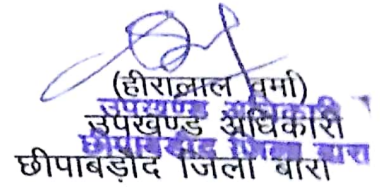 (हीरालाल वर्मा)
उपखण्ड अधिकारी
उपखण्ड अधिकारी
छीपाबड़ौद जिला बारां
छीपाबड़ौद जिला बारां